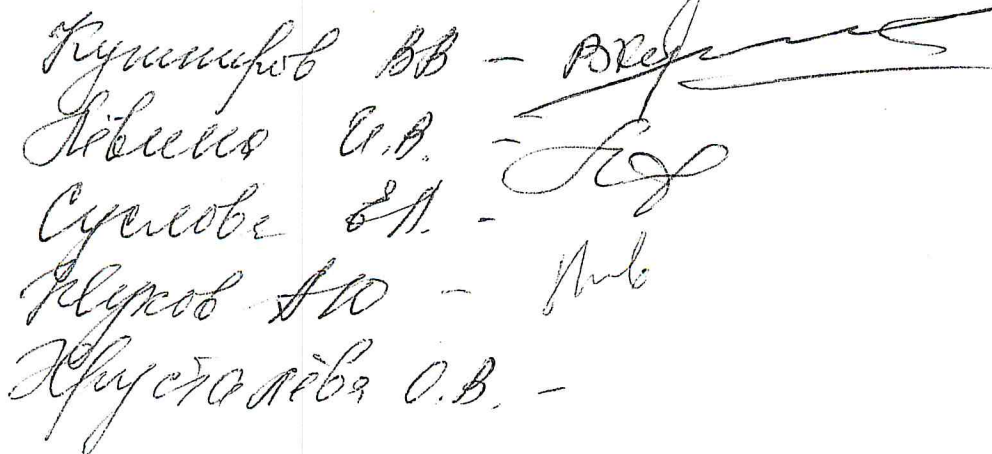 Кушниров ВВ –
Лёвина И.В. –
Суслова Е.А. –
Жуков АЮ –
Хрусталёва О.В. –